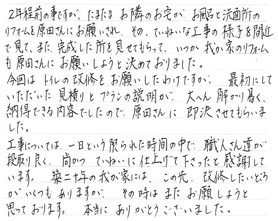 2年程前の事ですが、たまたま お隣のお宅が、お風呂と洗面所の
リフォームを原田さんにお願いされ、その、ていねいな工事の様子を間近
で見て、また、完成した所を見せてもらって、いつか 我が家のリフォーム
も 原田さんに お願いしようと決めておりました。
今回は トイレの改修を お願いしたわけですが、最初にして
いただいた 見積りと プランの説明が、大へん 解かり易く、
納得できる内容でしたので、原田さんに 即決させてもらいま
した。
工事については 一日という限られた時間の中で、職人さん達が
段取り良く、尚かつ ていねいに仕上げて下さったと感謝して
います。 築二十年の我が家には、この先、改修したいところ
が いくつも ありますが、 その時は また お願しようと
思っております。 本当に ありがとうございました。